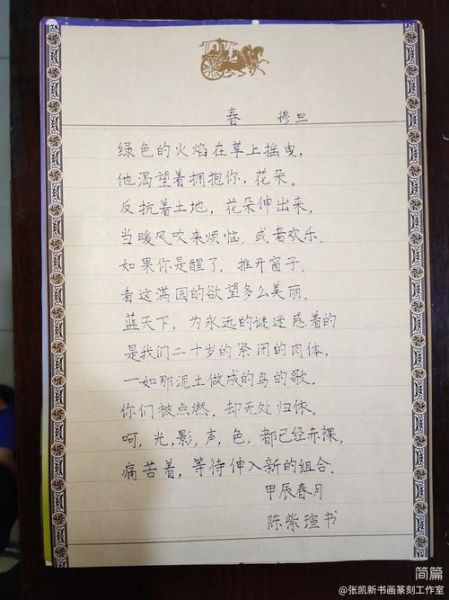 春 穆旦
绿色的火焰在草上摇曳,
他渴望着拥抱你,花朵.
反抗着土地,花朵伸出来,
当暖风吹来烦恼.或者欢乐.
如果你是醒了.推开窗子.
看这满园的欲望多么美丽.
蓝天下,为永远的谜迷惑着的
是我们二十岁的紧闭的肉体,
一如那泥土做成的鸟的歌.
你们被点燃,却无处归依.
呵,光,影,声,色,都已经赤裸,
痛苦着,等待伸入新的组合.
甲辰春月
陈紫瑄书
简篇
@张凯新书画篆刻工作室